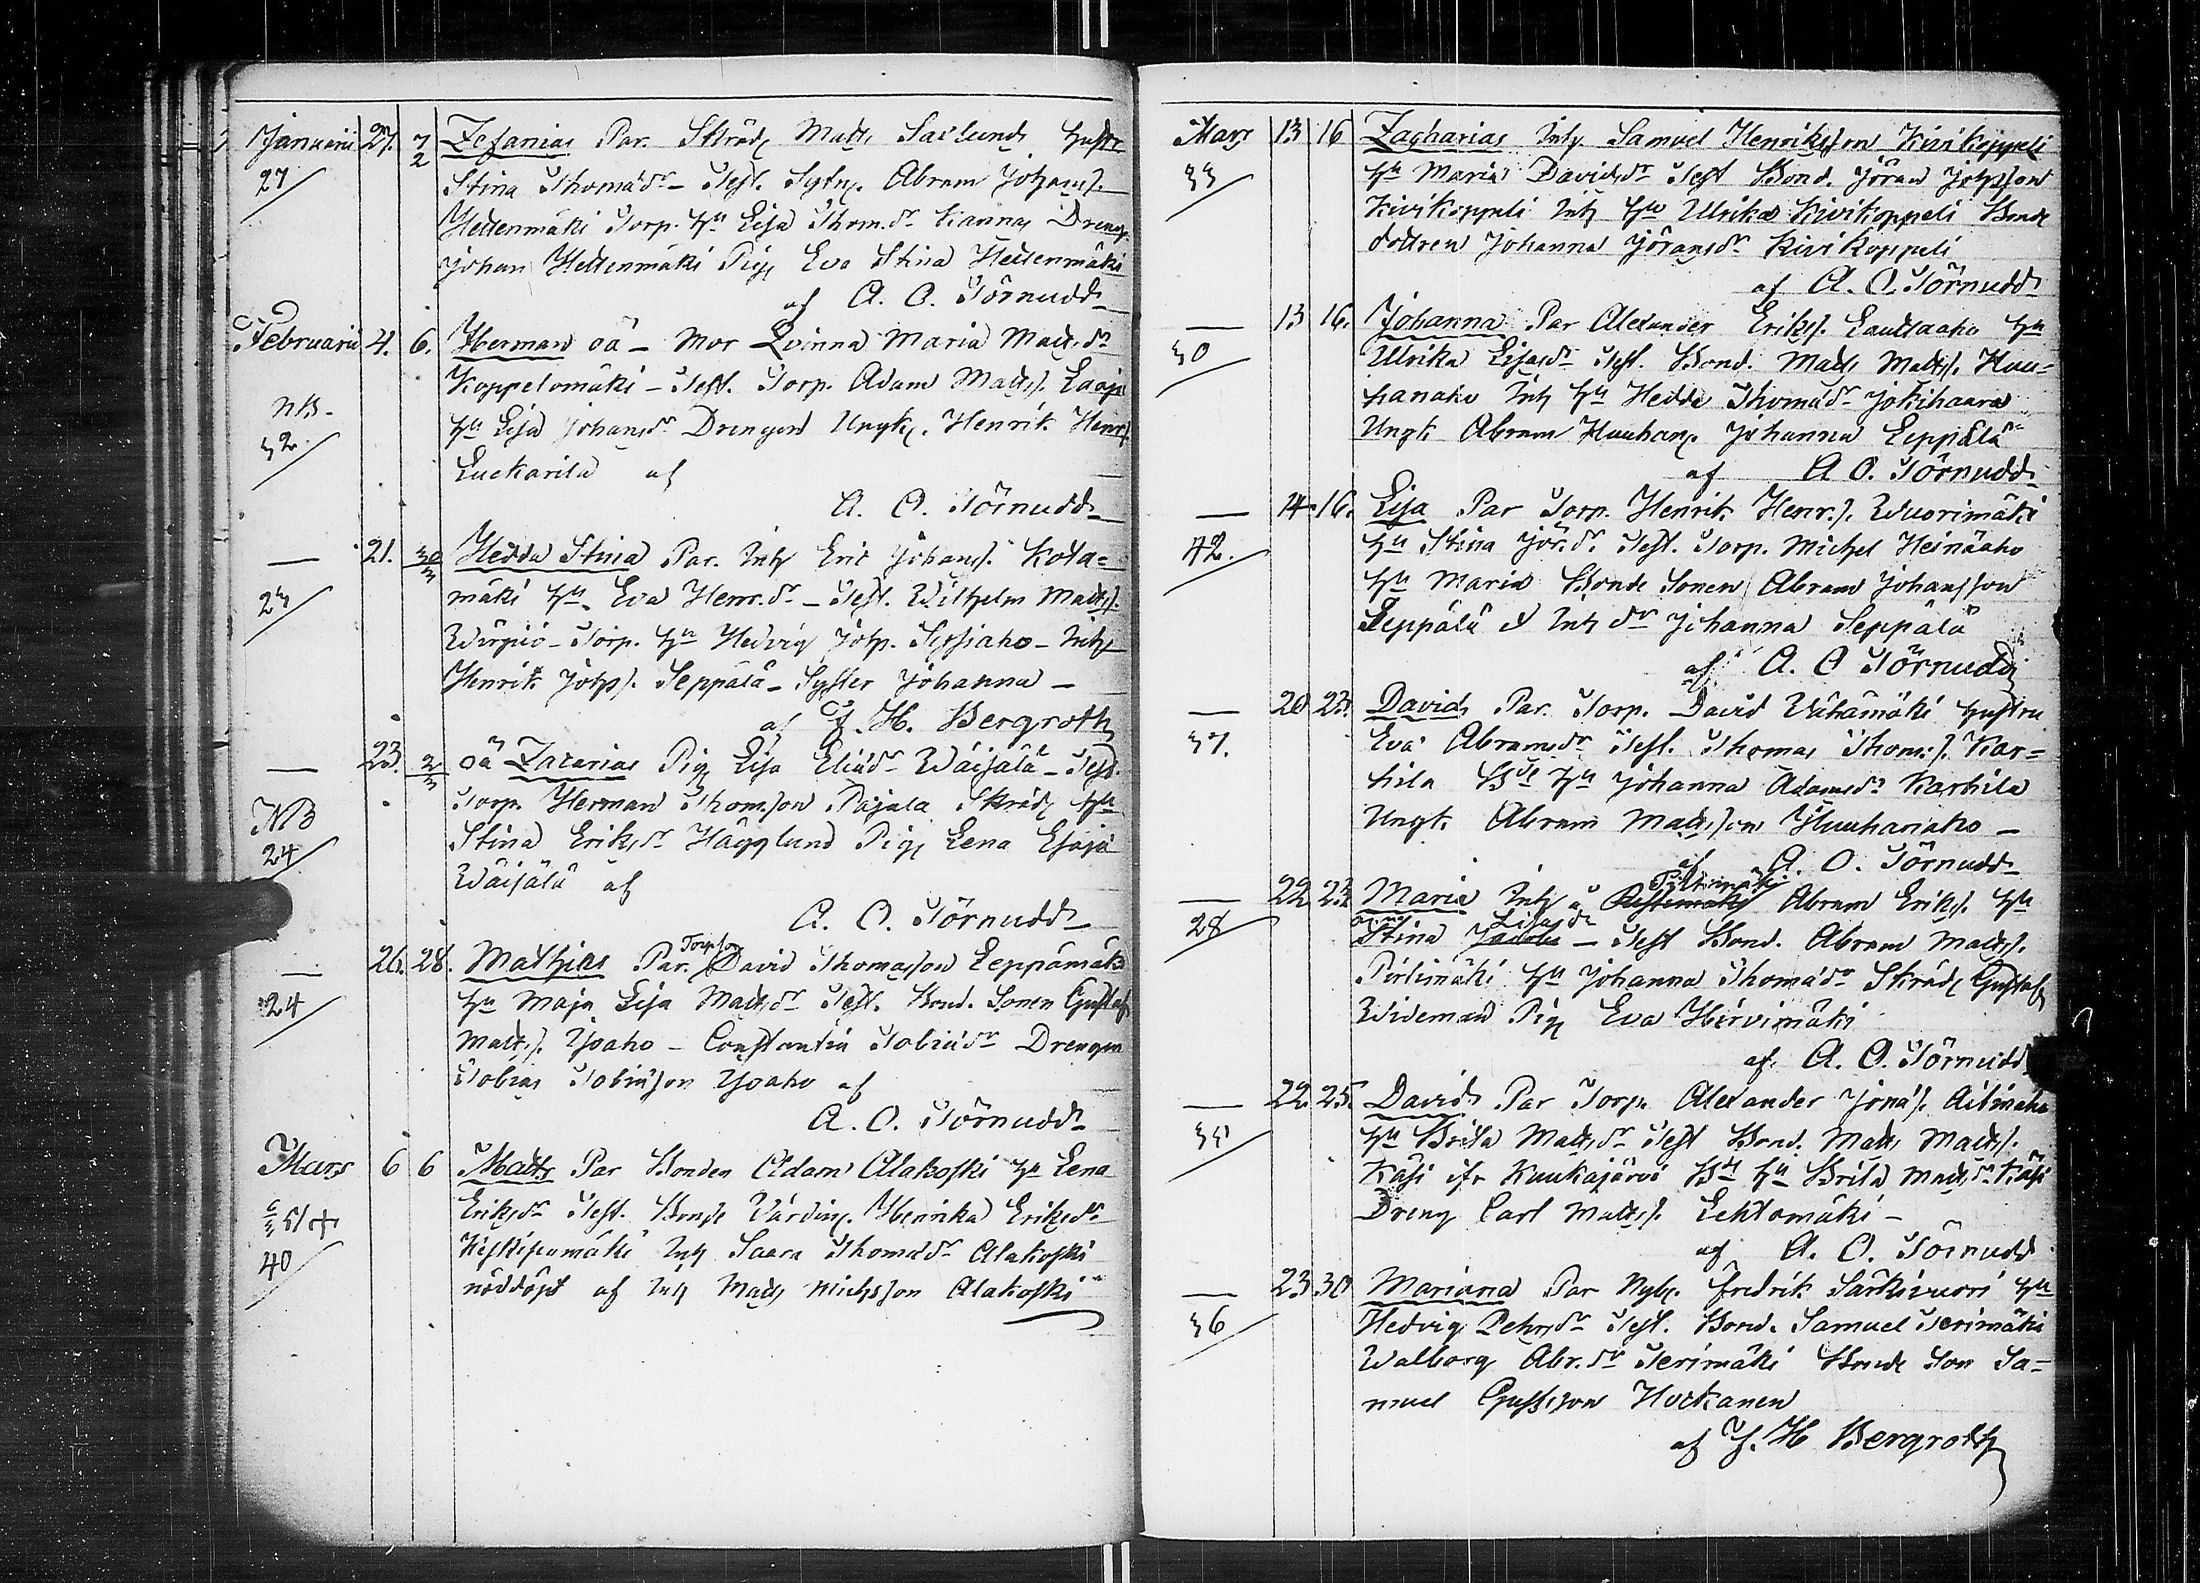 Januarii 27. 7/2 Zefanias Par. Skräd. Matts Saxlund hustr
27 Stina Thomasdr – Test. Sytn. Abram Johans.
Hettenmäki Torp. hu Lisa Thom.dr Kannas Dreng.
Johan Hettenmäki Pig. Eva Stina Hettenmäki
af A. O. Törnudd
Februarii 4. 6. Herman oä – Mor Qvinna Maria Matts dr
Koppelomäki – Test. Torp. Adam Matts. Laaja
NB. hu Lisa Johans dr Drengen Ungk. Henrik Henr.
32. Luckarila af
A. O. Törnudd
— 21. 30/3 Hedda Stina Par. Inh Erik Johans. Kota=
23 mäki hu. Eva Henr. dr – Test. Wilhelm Matts.
Wirpiö – Torp. hu Hedvig Joh. Sessiaho – Inh
Henrik Johs. Seppälä – Syster Johanna –
af J. H. Bergroth
— 23. 2/3 oä Zacarias Pig Lisa Elias dr Wäisälä – Test.
Torp. Herman Thomsson Pajala Skräd. hu
NB Stina Eriks dr Hägglund Pig Lena Esajad.
24 Wäisälä af
A. O. Törnudd
— 26. 28. Mathias Par. Torpson David Thomasson Leppämäki
24 hu Maja Lisa Matts dr Test. Bond. Sonen Gustaf
Matts. Ypaho – Constantia Tobias dr Drengen
Tobias Tobiasson Ypaho af
A. O. Törnudd
Mars 6 6 Matts Par Bonden Adam Alakoski hu Lena
Eriks dr Test. Bonde Värdin. Henrika Eriks dr
Kiskisenmäki Inh Saara Thomas dr Alakoski
40 nöddöpt af Inh Matts Michsson Alakoski
Mars 13 16 Zacharias Inh. Samuel Henriksson Kivikoppeli
33 hu Maria Davidsdr Test Bond. Jöran Johsson
Kivikoppeli Inh hu Ulrika Kivikoppeli Bonde
dottren Johanna Jörans dr Kivikoppeli
af A. O. Törnudd
— 13 16. Johanna Par Alexander Eriks. Lautsaaho hu
30 Ulrika Lisasdr Test. Bond. Matts Matts. Huu=
hanaho Inh hu Hedda Thomasdr Jokihaara
Ungk Abram Huuhan. Johanna Leppälä
af A O. Törnudd
— 14. 16. Lisa Par Torp. Henrik Henr. Wuorimäki
42. hu Stina Jör. dr. Test. Torp. Michel Heinäaho
hu Maria Bonde Sonen Abram Johansson
Seppälä & Inh dr Johanna Seppälä
af A. O Törnudd
— 20 23. David Par. Torp. David Vähämäki hustru
37. Eva Abrams dr Test. Thomas Thoms. Kar=
hila Bde hu Johanna Adams dr Karhila
Ungk. Abram Mattsson Huuhanaho –
af A. O. Törnudd
Pirtimäki
— 22. 23 Maria Inh å Abram Eriks. hu
Lisas dr
28 Stina Jacobs – Test Bond. Abram Matts.
Pirtimäki hu Johanna Thomas dr Skräd. Gustaf
Wideman Pig Eva Hirvimäki
af. A. O. Törnudd
— 22. 25. David Par Torp. Alexander Jonas. Aitinaho
hu Brita Matts dr Test Bond. Matts Matts.
Käsi ifr. Kuukajärvi Bde hu Brita Matts dr Käsi
Dreng Carl Matts. Lehtomäki –
af A. O. Törnudd
— 23 30 Mariana Par Nyb. Fredrik Särkivuori hu
36 Hedvig Pehrs dr Test. Bond. Samuel Terimäki
Walborg Abr. dr Terimäki Bonde Son Sa=
muel Gustsson Hockanen
af J. H Bergroth